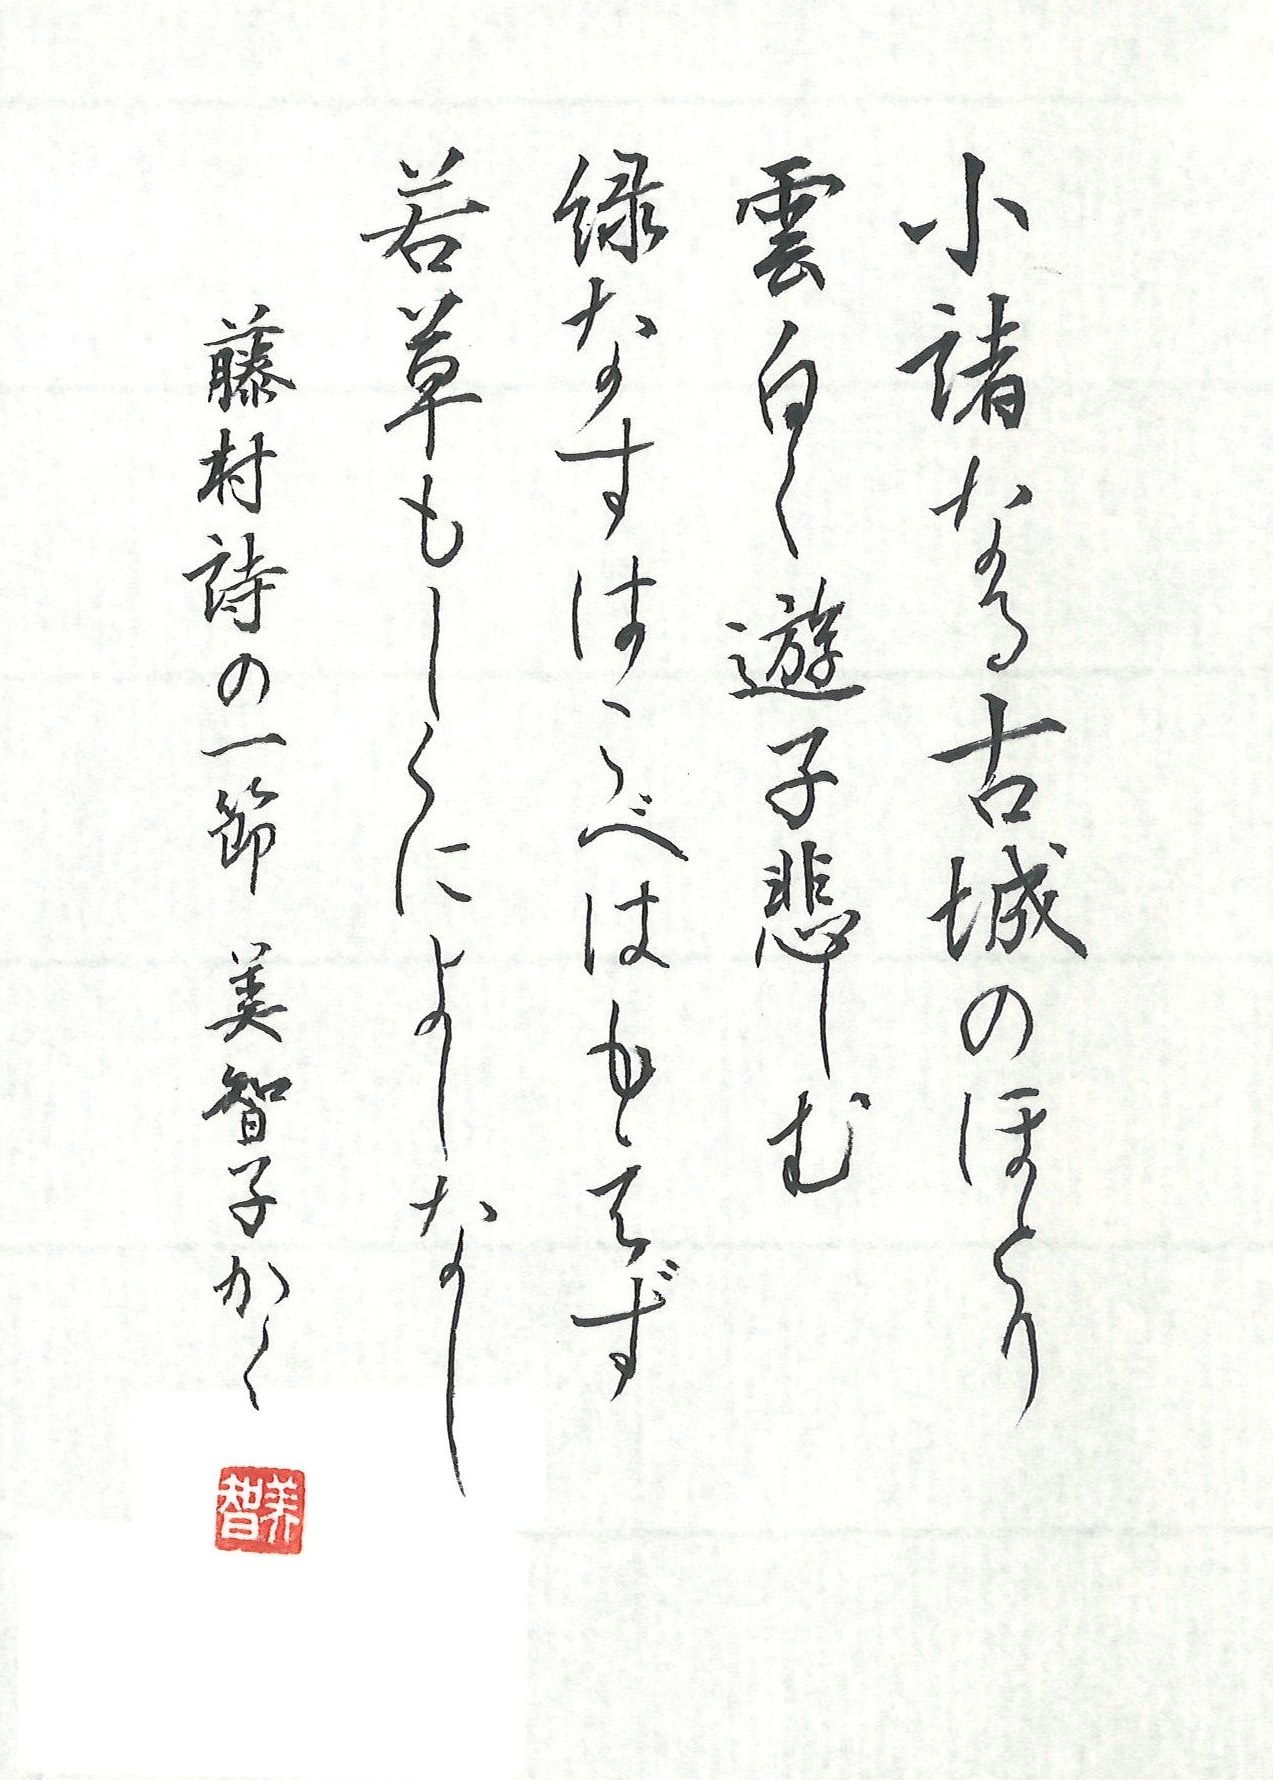 小諸なる古城のほとり
雲白く遊子悲しむ
緑なすはこべはもえず
若草もしくによしなし
藤村詩の一節 美智子かく
美智